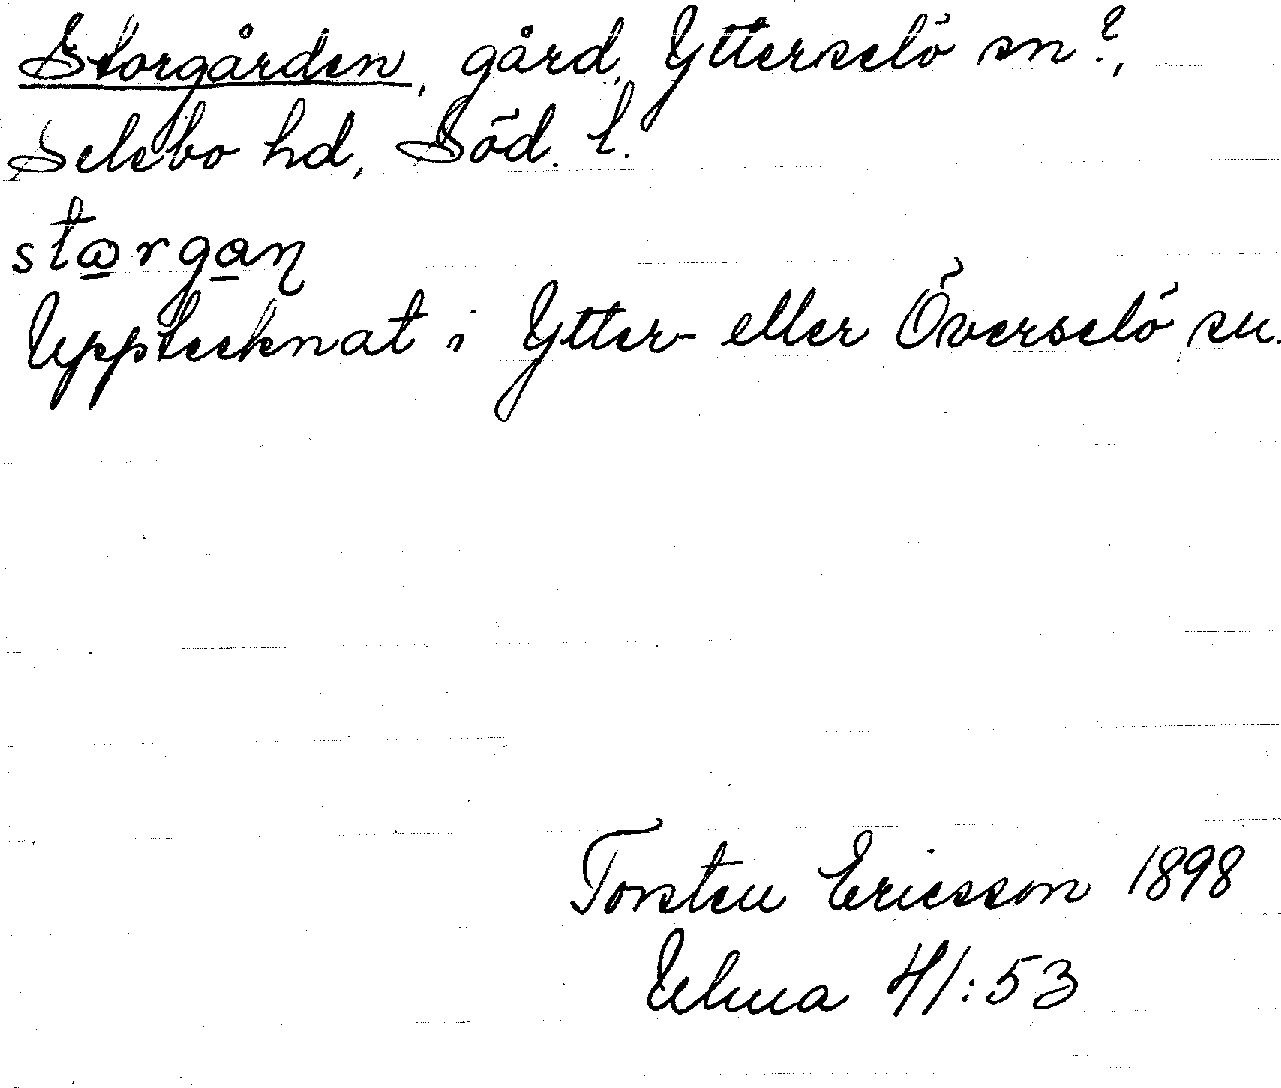 Storgården, gård, Ytterselö sn?,
Selebo hd, Söd. l.
Upptecknat i Ytter- eller Överselö sn.
Torsten Ericsson 1898
Ulma 41:53